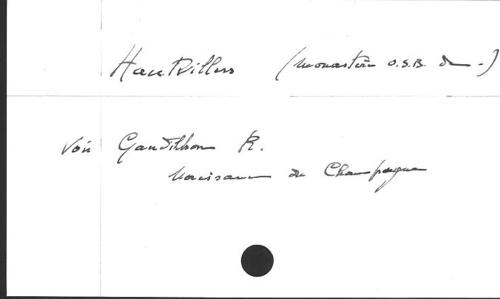 Hautvillers (monastère O.S.B. de -)
Voir Gandilhon R.
Naissance du Champagne